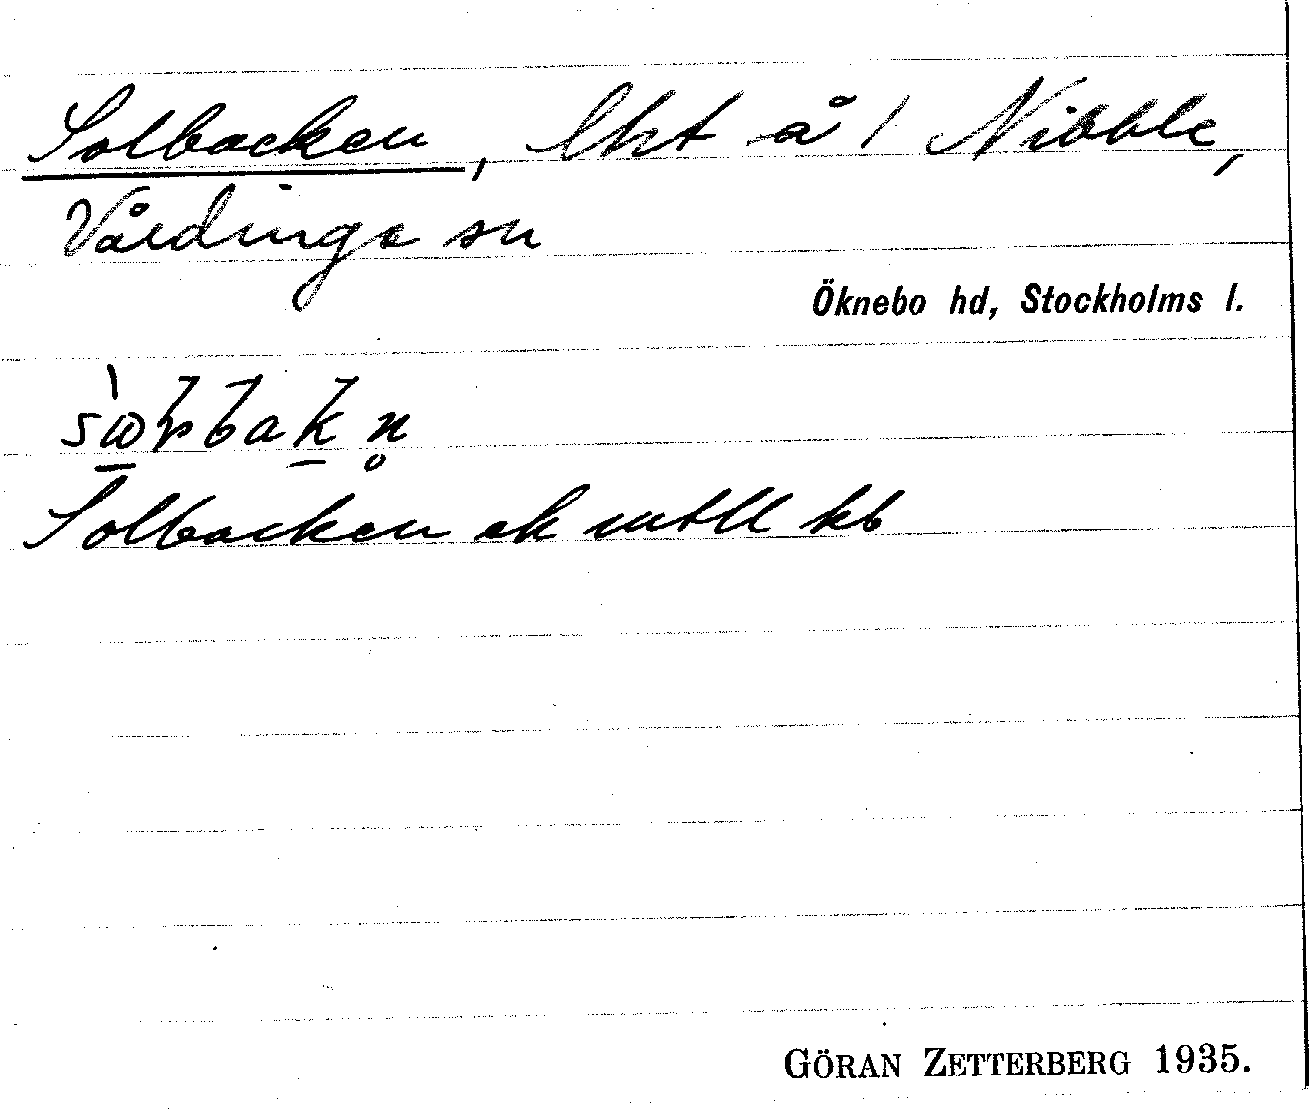 Solbacken, lht å / Nibble,
Vårdinge sn
Öknebo hd, Stockholms l.
Solbacken ek mtll kb
GÖRAN ZETTERBERG 1935.